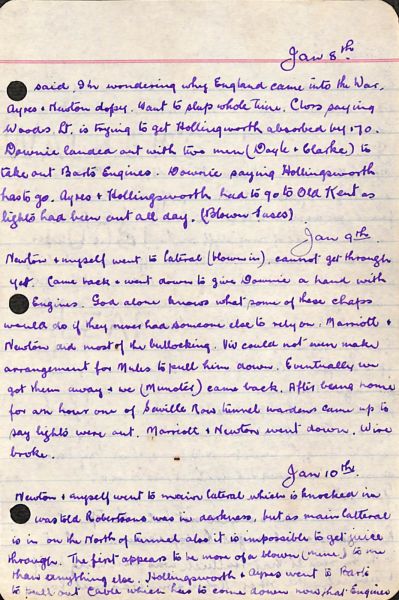 Jan 8th.
said. I'm wondering why England came into the War.
Ayres + Newton dopey. Want to sleep whole time. Chors saying
Woods Lt. is trying to get Hollingworth absorbed by 170.
Downie landed out with two men (Doyle + Clarke) to
take out Barts Engines. Downie saying Hollingsworth
has to go. Ayres + Hollingsworth had to go to Old Kent as
lights had been out all day. (Blown fuses)
Jan 9th.
Newton + myself went to lateral (blown in), cannot get through
yet. Came back + went down to give Downie a hand with
Engines. God alone knows what some of these chaps
would do if they never had someone else to rely on. Marriott +
Newton did most of the bullocking. Viv could not even make
arrangement for Mules to pull him down. Eventually we
got them away + we (Munster) came back. After being home
for an hour one of Saville Row tunnel wardens came up to
say lights were out. Marriott + Newton went down. Wire
broke.
Jan 10th.
Newton + myself went to main lateral which is knocked in
was told Robertsons was in darkness, but as main latteral
is in on the North of tunnel also it is impossible to get juice
through. The first appears to be more of a blown (mine) to me
than anything else. Hollingsworth + Ayres went to Barts
to pull out Cable which has to come down now that Engines